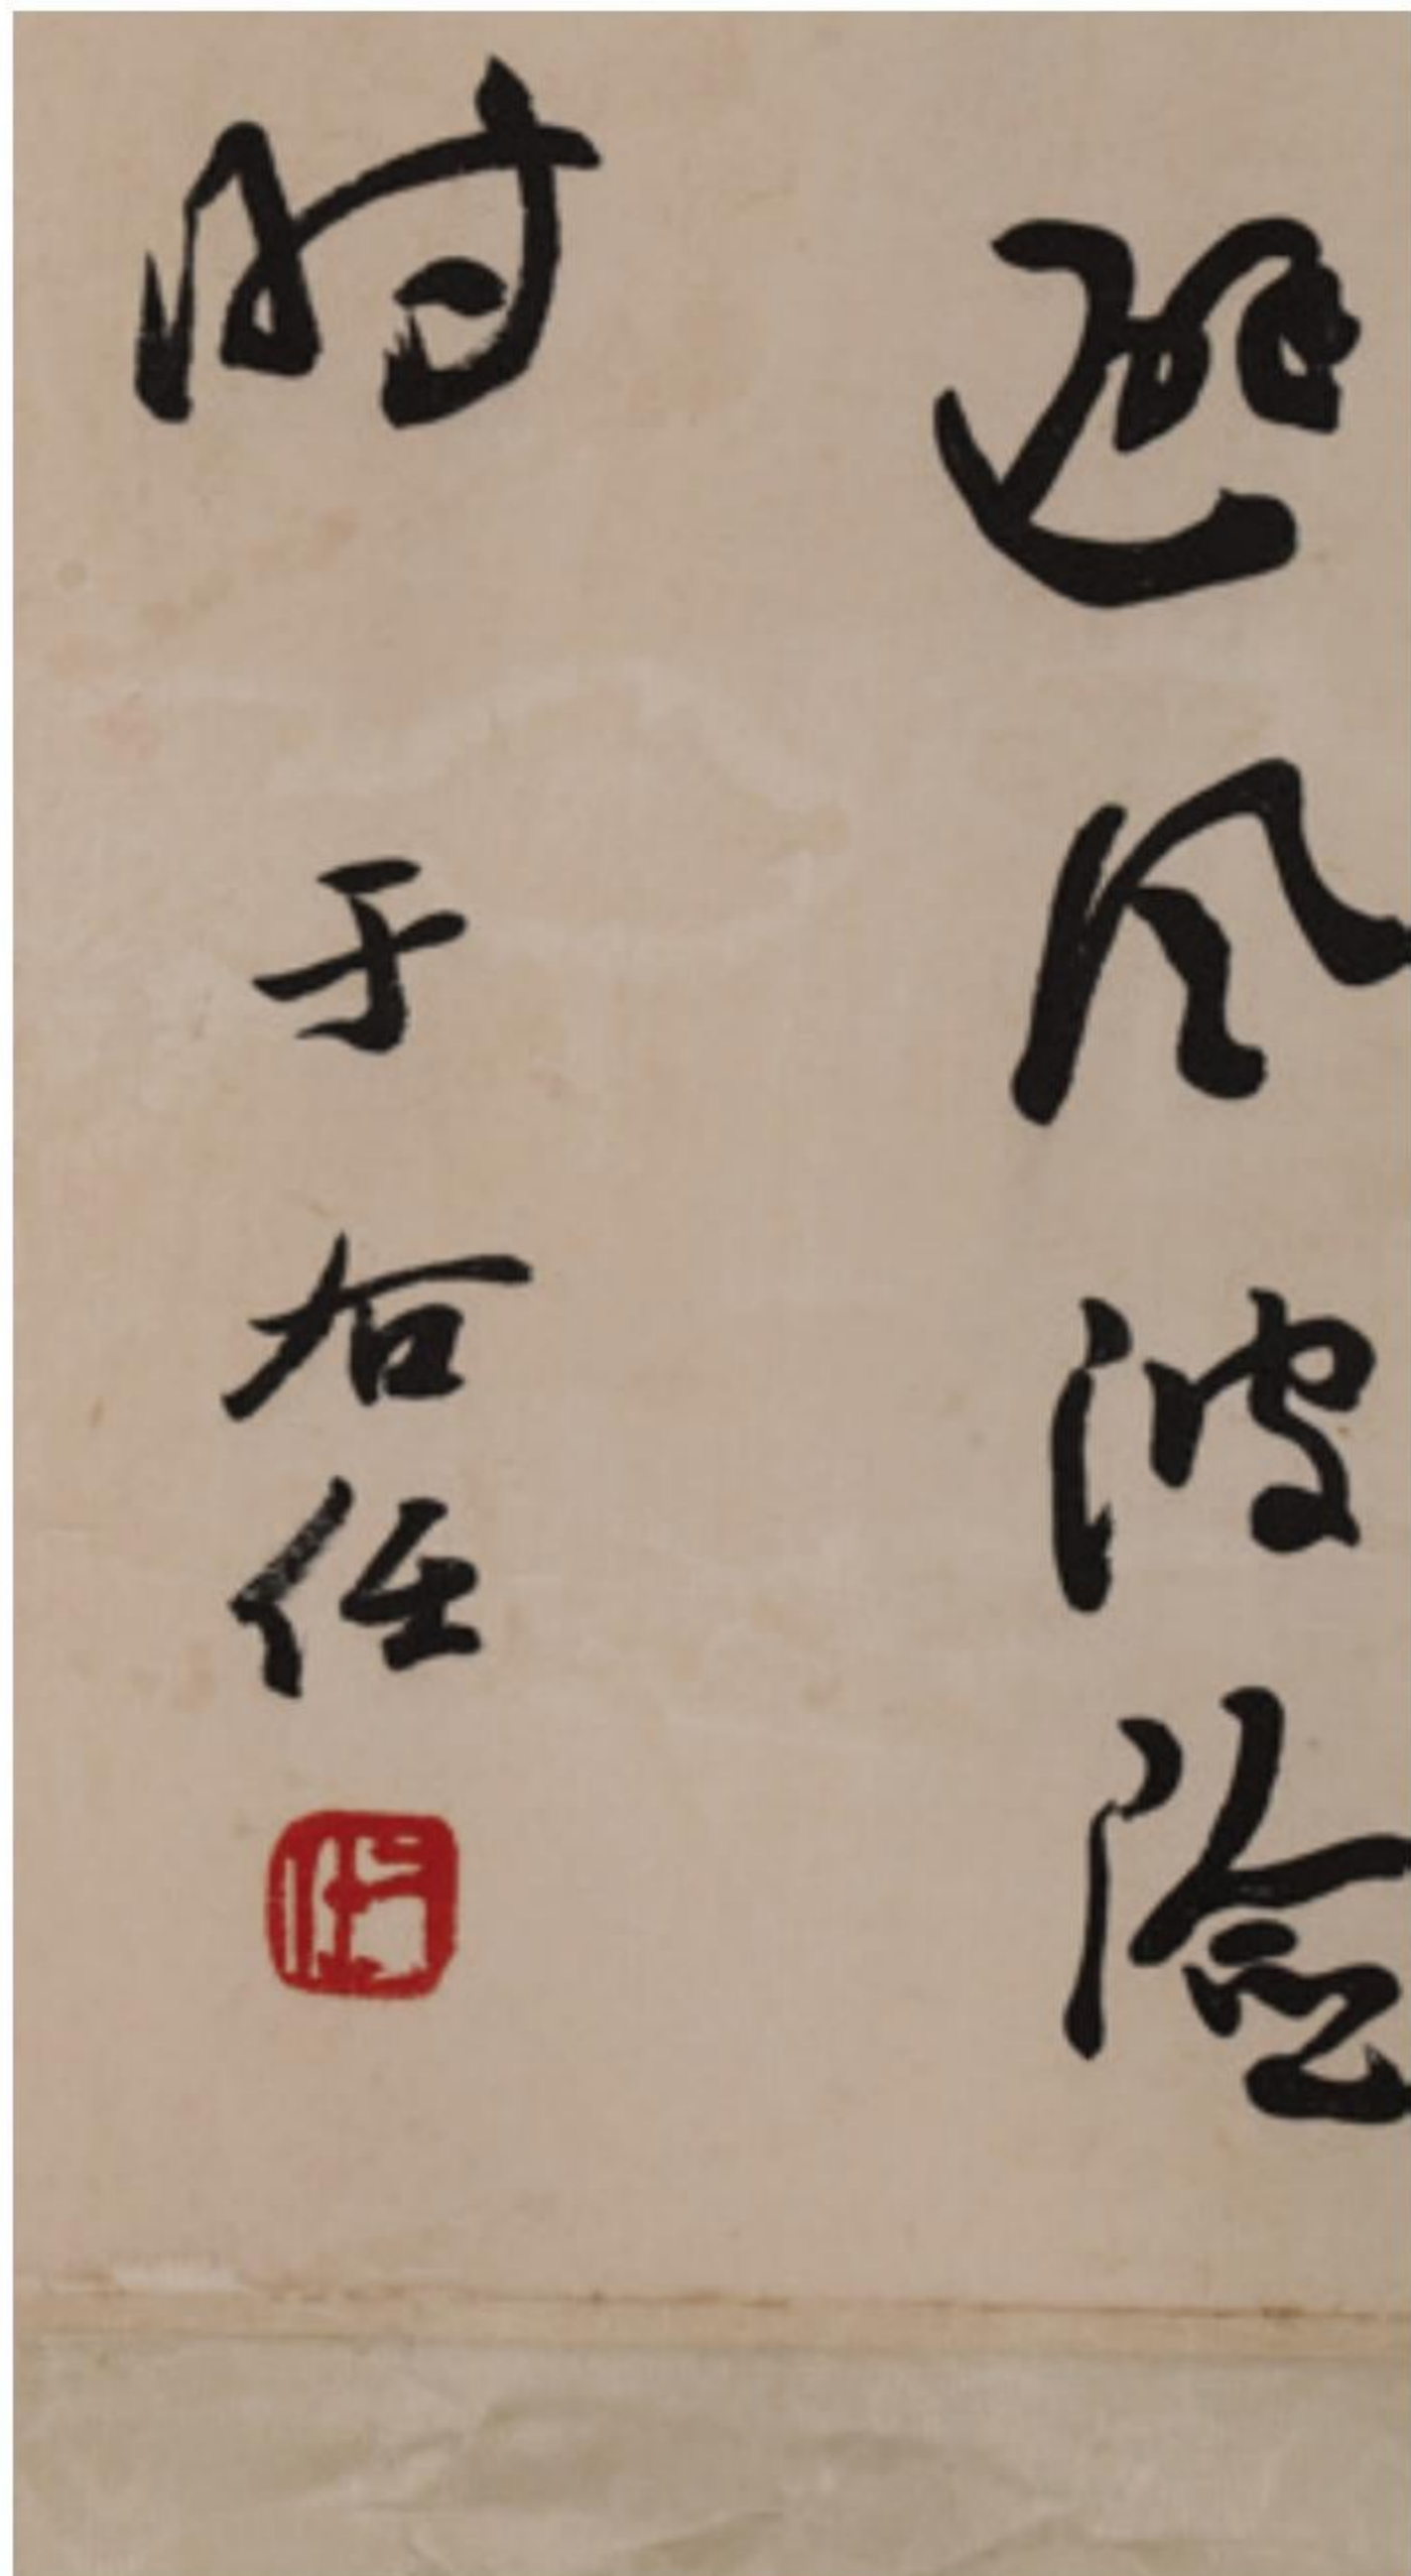 風波險
時 于右任
右任